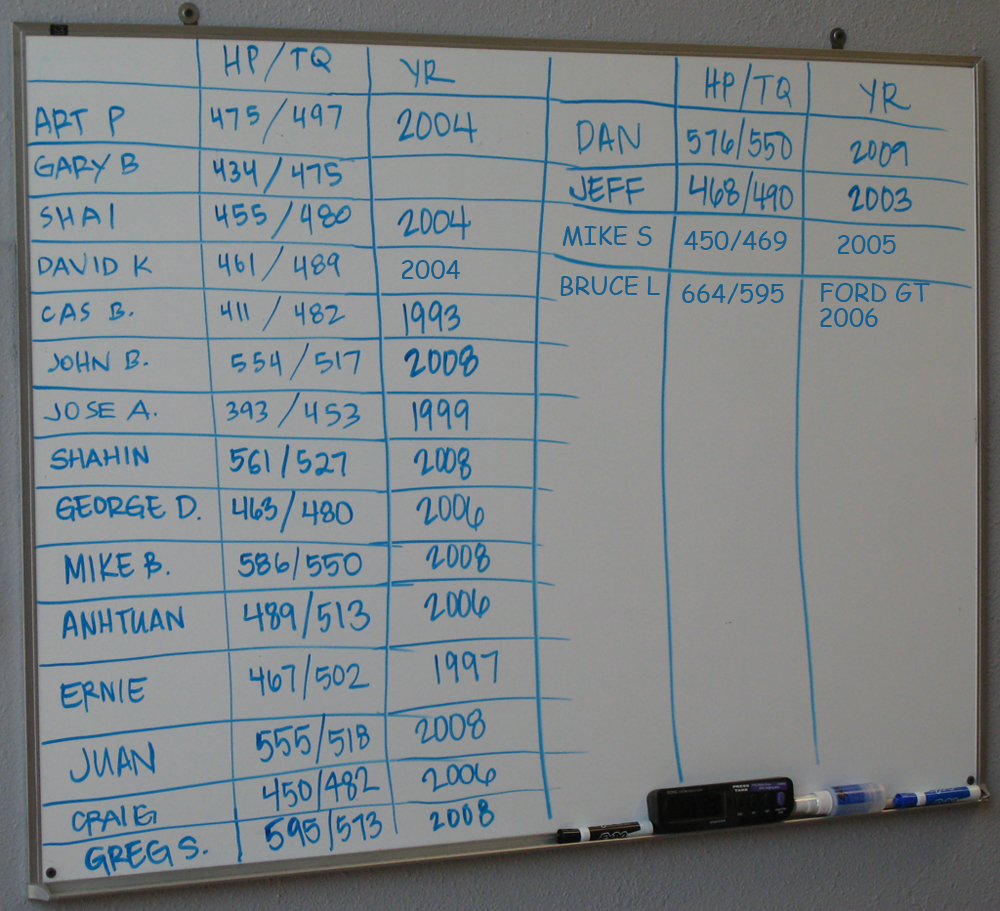 HP/TQ YR
ART P 475/497 2004
GARY B 434/475
SHAI 455/480 2004
DAVID K 461/489 2004
CAS B. 411/482 1993
JOHN B. 554/517 2008
JOSE A. 393/453 1999
SHAHIN 561/527 2008
GEORGE D. 463/480 2006
MIKE B. 586/550 2008
ANHTUAN 489/513 2006
ERNIE 467/502 1997
JUAN 555/518 2008
CRAIG 450/482 2006
GREG S. 595/573 2008
HP/TQ YR
DAN 576/550 2009
JEFF 468/490 2003
MIKE S 450/469 2005
BRUCE L 664/595 FORD GT
2006